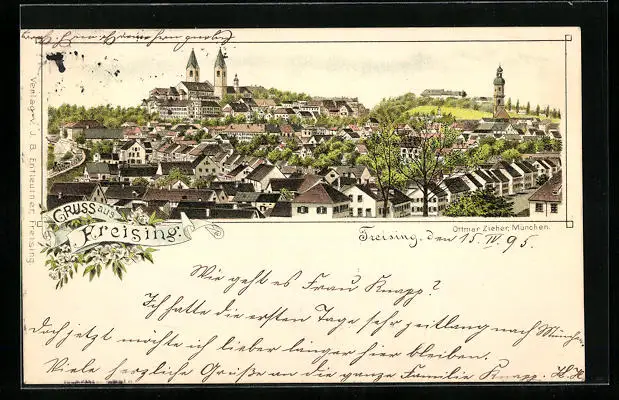 Gruss aus
Freising.
Verlag v. J. B. Entleutner, Freising
Ottmar Zieher, München.
Freising, den 15. IV. 95.
Wie geht es Frau Knapp?
Ich hatte die ersten Tage sehr zeitlang nach München,
doch jetzt möchte ich lieber länger hier bleiben.
Viele herzliche Grüße an die ganze Familie Knapp. H. H